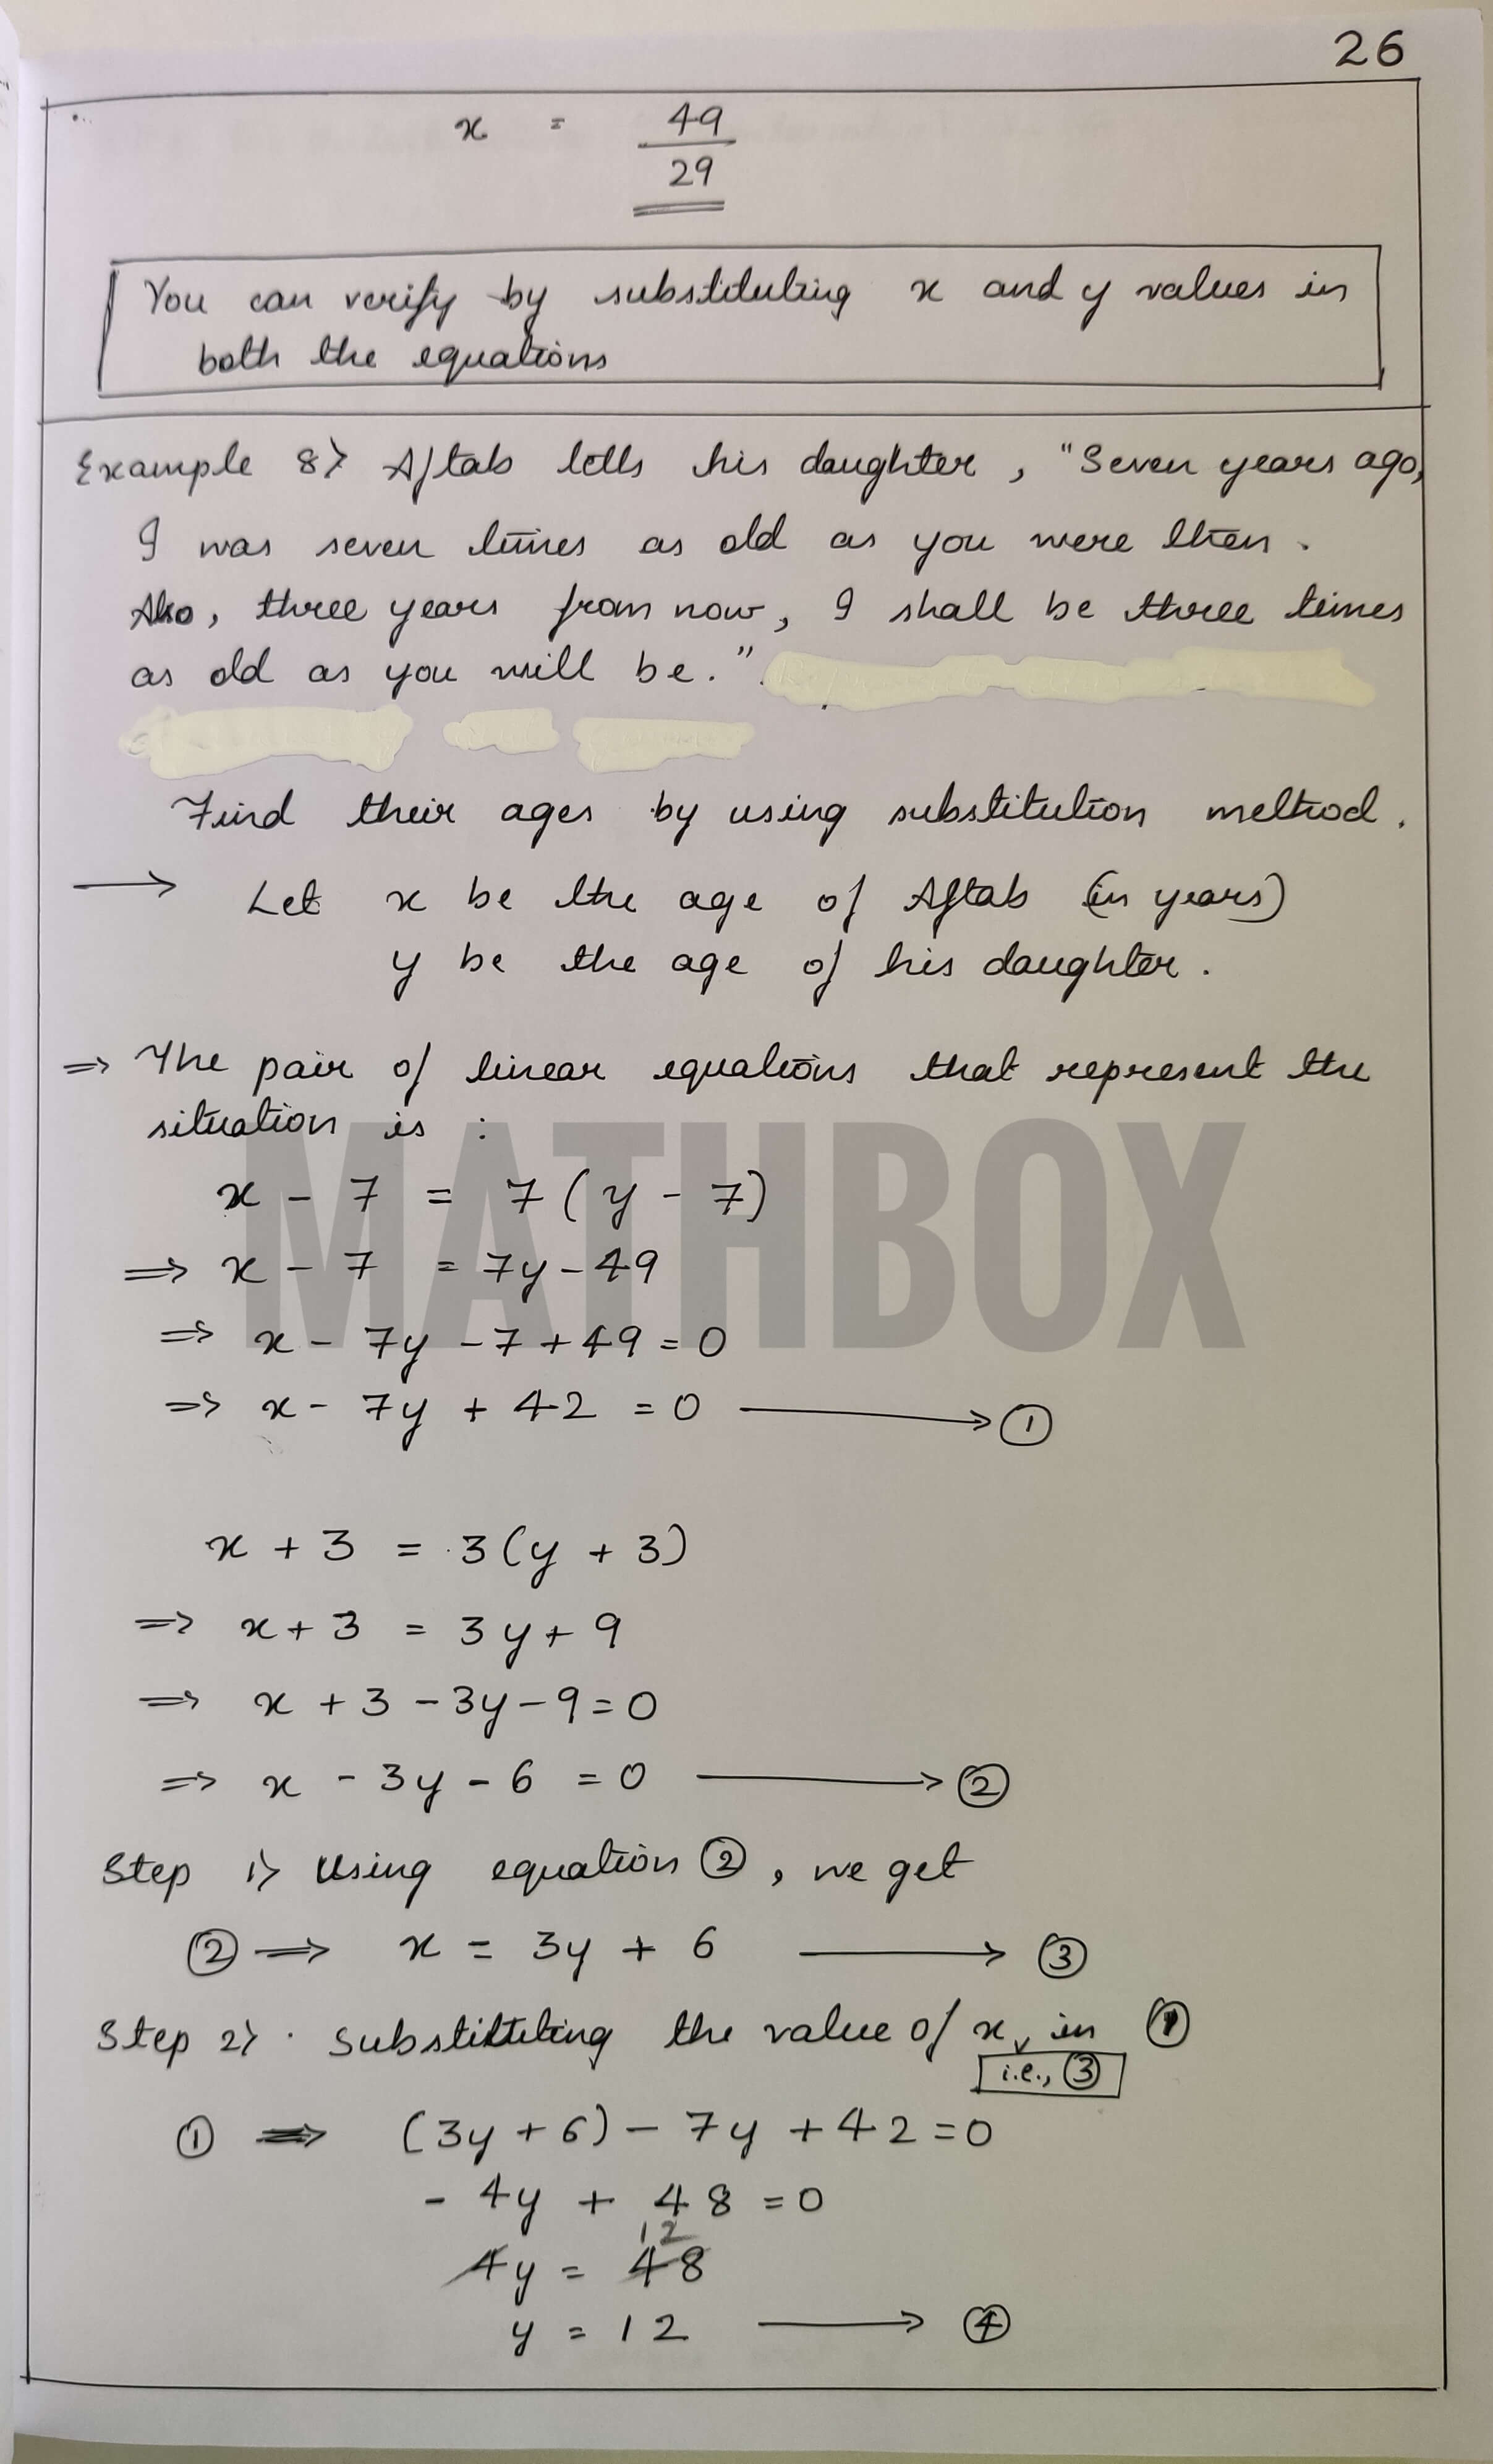 26
x = 49/29
You can verify by substituting x and y values in
both the equations
Example 8> Aftab tells his daughter, "Seven years ago,
I was seven times as old as you were then.
Also, three years from now, I shall be three times
as old as you will be."
Find their ages by using substitution method.
→ Let x be the age of Aftab (in years)
y be the age of his daughter.
⇒ The pair of linear equations that represent the
situation is :
MATHBOX
x - 7 = 7(y - 7)
⇒ x - 7 = 7y - 49
⇒ x - 7y - 7 + 49 = 0
⇒ x - 7y + 42 = 0 → ①
x + 3 = 3(y + 3)
⇒ x + 3 = 3y + 9
⇒ x + 3 - 3y - 9 = 0
⇒ x - 3y - 6 = 0 → ②
Step 1> Using equation ②, we get
② ⇒ x = 3y + 6 → ③
Step 2> Substituting the value of x, in ①
i.e., ③
① ⇒ (3y + 6) - 7y + 42 = 0
- 4y + 48 = 0
12
4y = 48
y = 12 → ④